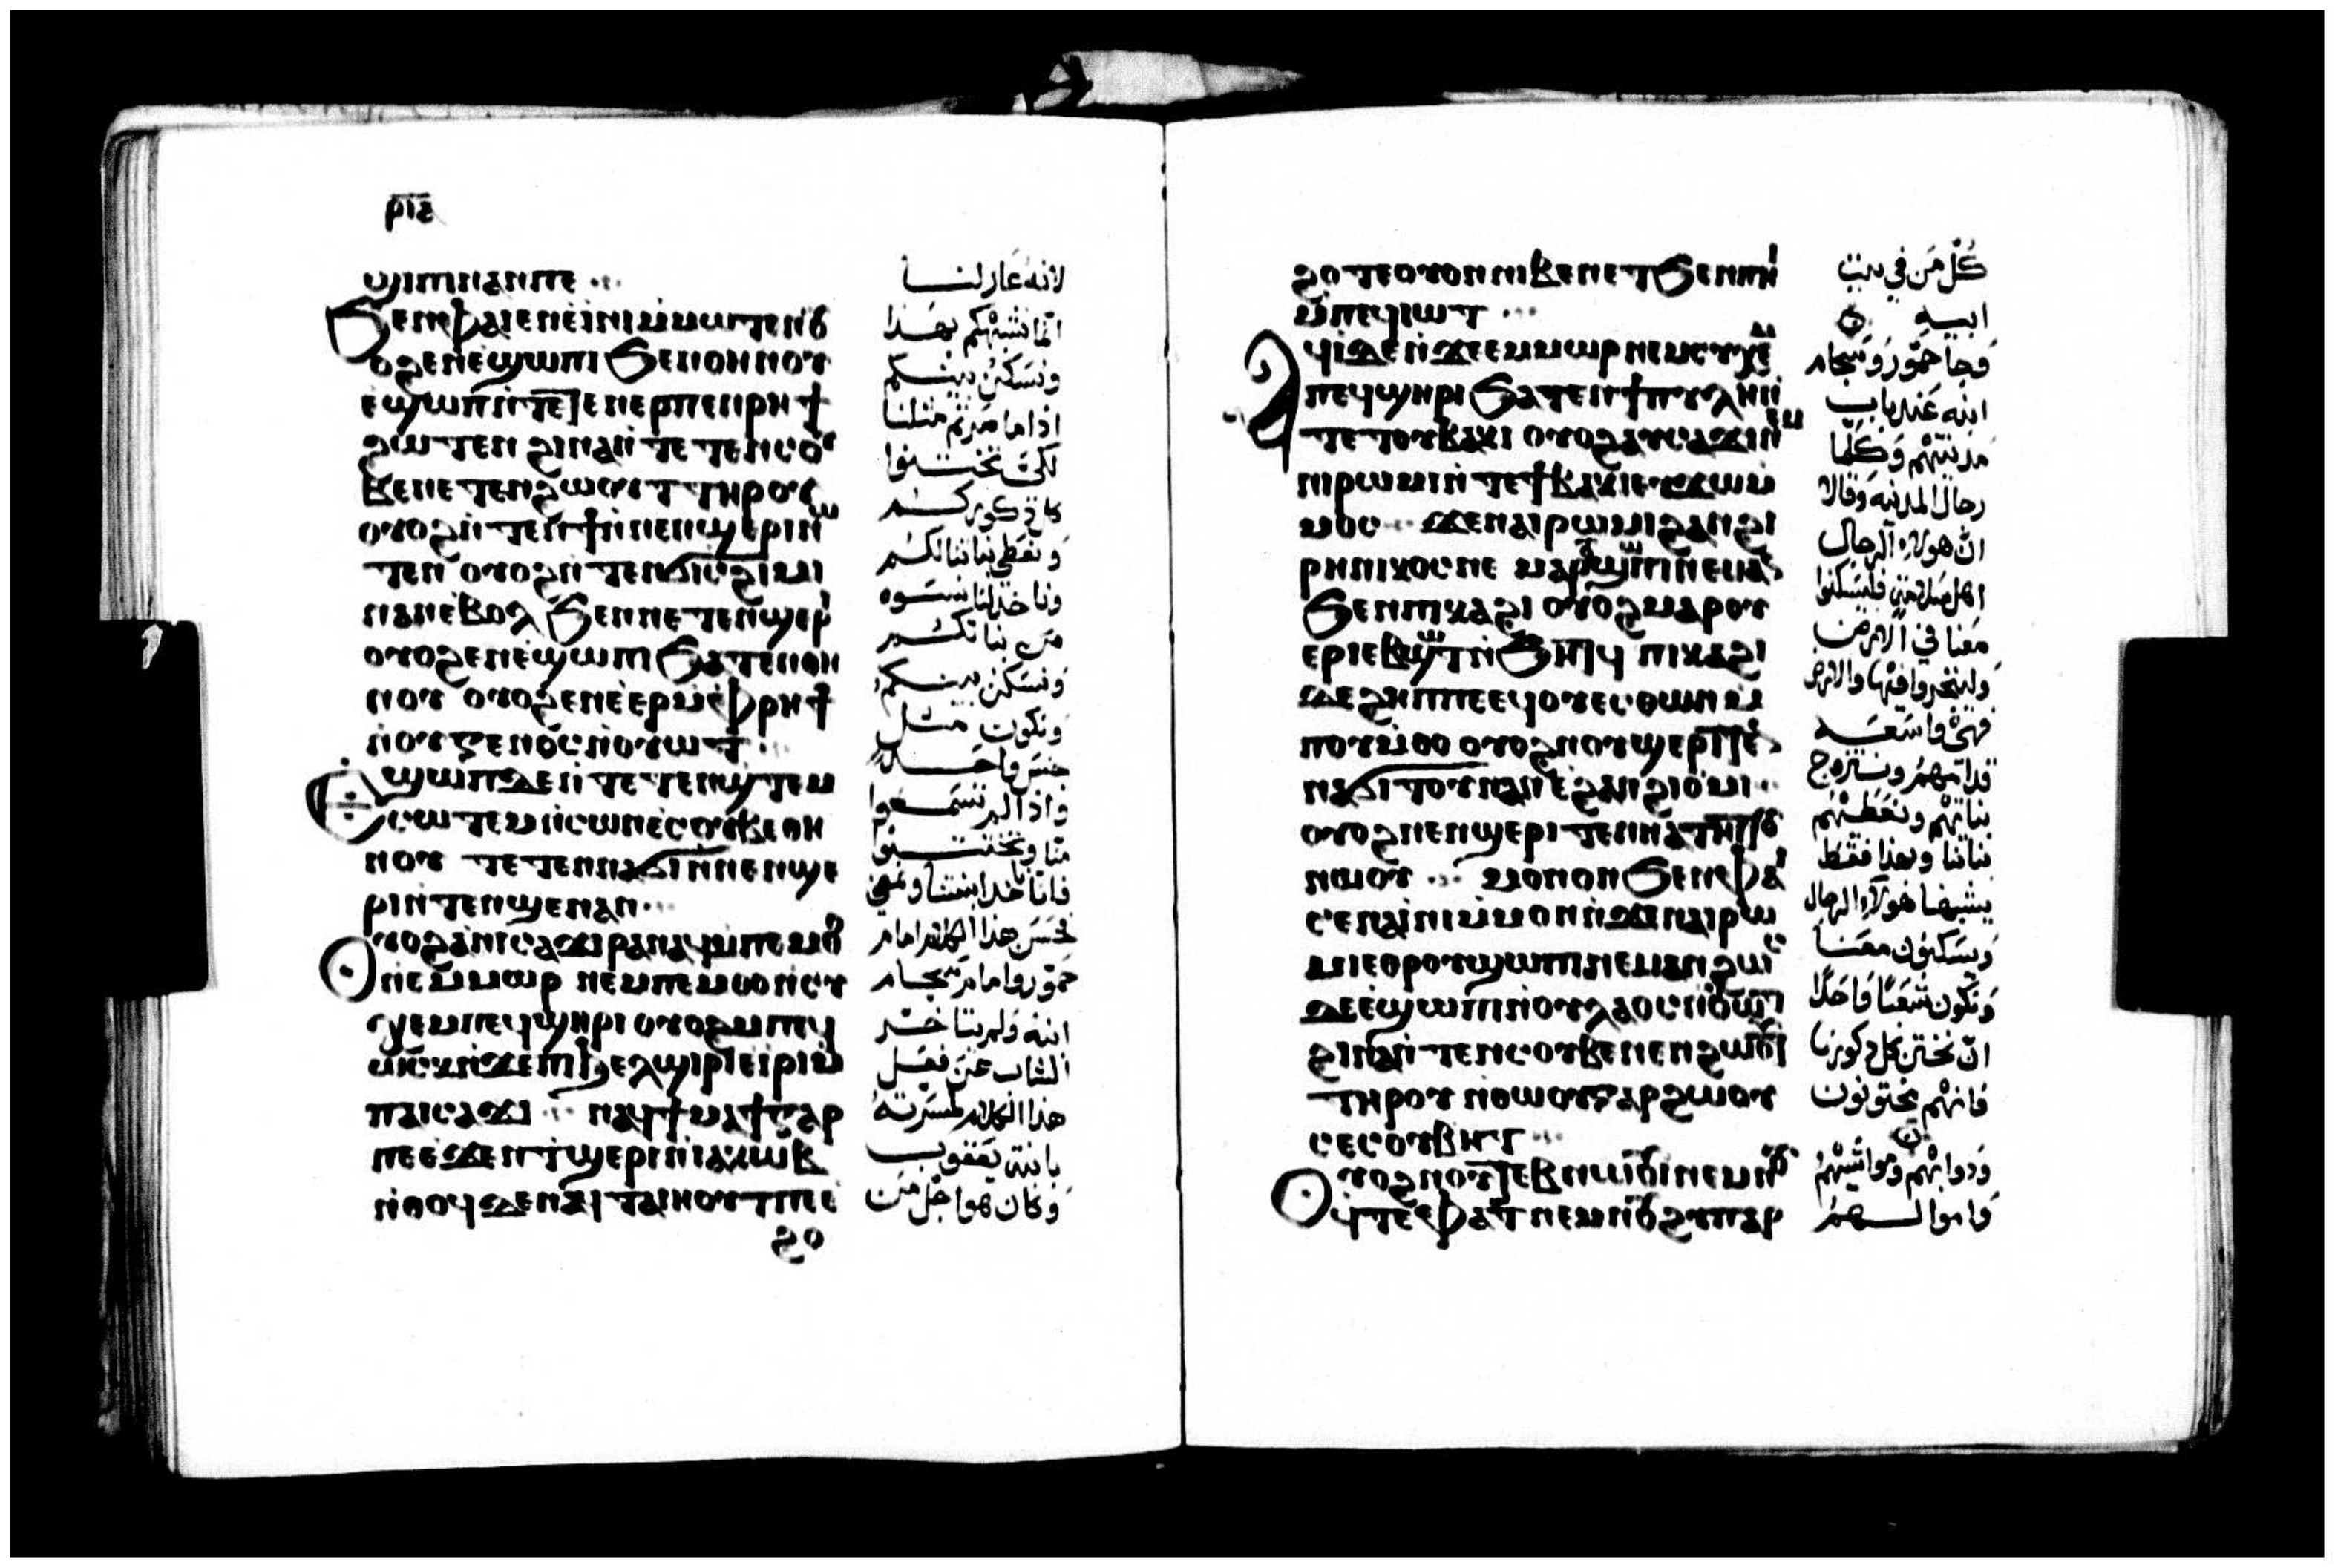 ⲣⲓⲍ
ϣⲓⲡⲓ ⲛⲁⲛ ⲡⲉ
ϧⲉⲛ ⲫⲁⲓ ⲉⲛⲉⲓⲛⲓ ⲙⲙⲱⲧⲉⲛ
ⲟⲩⲟϩ ⲉⲛⲉϣⲱⲡⲓ ϧⲉⲛ ⲑⲏⲛⲟⲩ
ϩⲱⲧⲉⲛ ϩⲓⲛⲁ ⲛⲧⲉⲧⲉⲛⲥⲟⲩ
ⲃⲉ ⲛⲉⲧⲉⲛϩⲱⲟⲩⲧ ⲧⲏⲣⲟⲩ
ⲟⲩⲟϩ ⲛⲧⲉⲛϯ ⲛⲛⲉⲛϣⲉⲣⲓ ⲛⲱ
ⲧⲉⲛ ⲟⲩⲟϩ ⲛⲧⲉⲛϭⲓ ⲥϩⲓⲙⲓ
ⲛⲁⲛ ⲉⲃⲟⲗ ϧⲉⲛ ⲛⲉⲧⲉⲛϣⲉⲣⲓ
ⲟⲩⲟϩ ⲉⲛⲉϣⲱⲡⲓ ϧⲁⲧⲉⲛ ⲑⲏ
ⲛⲟⲩ ⲟⲩⲟϩ ⲉⲛⲉⲉⲣ ⲙⲫⲣⲏϯ
ⲛⲟⲩⲅⲉⲛⲟⲥ ⲛⲟⲩⲱⲧ
ⲉϣⲱⲡ ⲇⲉ ⲛⲧⲉⲧⲉⲛϣⲧⲉⲙ
ⲥⲱⲧⲉⲙ ⲛⲥⲱⲛ ⲉⲥⲟⲩⲃⲉ ⲑⲏ
ⲛⲟⲩ ⲧⲉⲧⲉⲛⲛⲁϭⲓ ⲛⲛⲉⲛϣⲉ
ⲣⲓ ⲛⲧⲉⲛϣⲉ ⲛⲁⲛ
ⲟⲩⲟϩ ⲁⲛⲓⲥⲁϫⲓ ⲣⲁⲛⲁϥ ⲙⲡⲉⲙⲑⲟ
ⲛⲉⲙⲙⲱⲣ ⲛⲉⲙ ⲡⲉⲙⲑⲟ ⲛⲥⲩ
ⲭⲉⲙ ⲡⲉϥϣⲏⲣⲓ ⲟⲩⲟϩ ⲙⲡⲉϥ
ⲱⲥⲕ ⲛϫⲉ ⲡⲓϧⲉⲗϣⲓⲣⲓ ⲉⲓⲣⲓ ⲙ
ⲡⲁⲓⲥⲁϫⲓ ⲛⲁϥϯⲙⲁϯ ⲅⲁⲣ
ⲡⲉ ⲉϫⲉⲛ ⲧϣⲉⲣⲓ ⲛⲓⲁⲕⲱⲃ
ⲛⲑⲟϥ ⲇⲉ ⲛⲁϥⲧⲁⲓⲏⲟⲩⲧ ⲡⲉ
ϩⲟ
لانه عار لنا
انما نشبهكم بهذا
ونسكن بينكم
اذا ما صرتم مثلنا
لكي تختتنوا
كل ذكوركم
ونعطي بناتنا لكم
وناخذ لنا نسوه
من بناتكم
ونسكن بينكم
ونكون مثل
جنس واحد
واذا لم تسمعوا
منا وتختتنوا
فانا ناخذ ابنتنا ونمضي
فحسن هذا الكلام امام
حمور وامام سجام
ابنه ولم يتاخر
الشاب عن فعل
هذا الكلام لمسرته
بابنة يعقوب
وكان هو اجل من
ϩⲟⲧⲉ ⲟⲩⲟⲛ ⲛⲓⲃⲉⲛ ⲉⲧϧⲉⲛ ⲡⲏⲓ
ⲙⲡⲉϥⲓⲱⲧ
ⲁϥⲓ ⲇⲉ ⲛϫⲉ ⲉⲙⲙⲱⲣ ⲛⲉⲙ ⲥⲩⲭⲉⲙ
ⲡⲉϥϣⲏⲣⲓ ϧⲁⲧⲉⲛ ϯⲡⲩⲗⲏ ⲛ
ⲧⲉ ⲧⲟⲩⲃⲁⲕⲓ ⲟⲩⲟϩ ⲁⲩⲥⲁϫⲓ ⲛⲉⲙ
ⲛⲓⲣⲱⲙⲓ ⲛⲧⲉ ϯⲃⲁⲕⲓ ⲉⲩϫⲱ ⲙ
ⲙⲟⲥ ϫⲉ ⲛⲁⲓⲣⲱⲙⲓ ϩⲁⲛϩⲓ
ⲣⲏⲛⲓⲕⲟⲥ ⲛⲉ ⲙⲁⲣⲟⲩϣⲱⲡⲓ ⲛⲉⲙⲁⲛ
ϧⲉⲛ ⲡⲓⲕⲁϩⲓ ⲟⲩⲟϩ ⲙⲁⲣⲟⲩ
ⲉⲣⲓⲉⲃϣⲱⲧ ⲛϧⲏⲧϥ ⲡⲓⲕⲁϩⲓ
ⲇⲉ ϩⲏⲡⲡⲉ ϥⲟⲩⲉⲥⲑⲱⲛ ⲙ
ⲡⲟⲩⲙⲑⲟ ⲟⲩⲟϩ ⲛⲟⲩϣⲉⲣⲓ ⲧⲉⲛ
ⲛⲁϭⲓⲧⲟⲩ ⲛⲁⲛ ⲉϩⲁⲛϩⲓⲟⲙⲓ
ⲟⲩⲟϩ ⲛⲉⲛϣⲉⲣⲓ ⲧⲉⲛⲛⲁⲧⲏⲓⲧⲟⲩ
ⲛⲱⲟⲩ ⲙⲟⲛⲟⲛ ϧⲉⲛ ⲫⲁⲓ
ⲥⲉⲛⲁⲓⲛⲓ ⲙⲙⲟⲛ ⲛϫⲉ ⲛⲁⲓⲣⲱ
ⲙⲓ ⲉⲑⲣⲟⲩϣⲱⲡⲓ ⲛⲉⲙⲁⲛ ϩⲱⲥ
ⲇⲉ ⲉϣⲱⲡⲓ ⲛⲟⲩⲗⲁⲟⲥ ⲛⲟⲩⲱⲧ
ϩⲓⲛⲁ ⲛⲧⲉⲛⲥⲟⲩⲃⲉ ⲛⲉⲛϩⲱⲟⲩⲧ
ⲧⲏⲣⲟⲩ ⲛⲑⲱⲟⲩ ⲅⲁⲣ ϩⲱⲟⲩ
ⲥⲉⲥⲟⲩⲃⲏⲧ
ⲟⲩⲟϩ ⲛⲟⲩⲧⲉⲃⲛⲱⲟⲩⲓ ⲛⲉⲙ ⲛⲟⲩ
ϥⲧⲉⲫⲁⲧ ⲛⲉⲙ ⲛⲟⲩϩⲩⲡⲁⲣ
كل من في بيت
ابيه
وجا حمور وسجام
ابنه عند باب
مدينتهم وكلما
رجال المدينه وقالا
ان هولاء الرجال
اهل سلامة فليسكنوا
معنا في الارض
وليتجروا فيها والارض
فهي واسعه
قدامهم ونتزوج
بناتهم ونعطيهم
بناتنا وبهذا فقط
يشبهنا هولاء الرجال
ويسكنون معنا
ونكون شعبا واحدا
ان نختن كل ذكورنا
فانهم مختونون
ودوابهم ومواشيهم
واموالهم